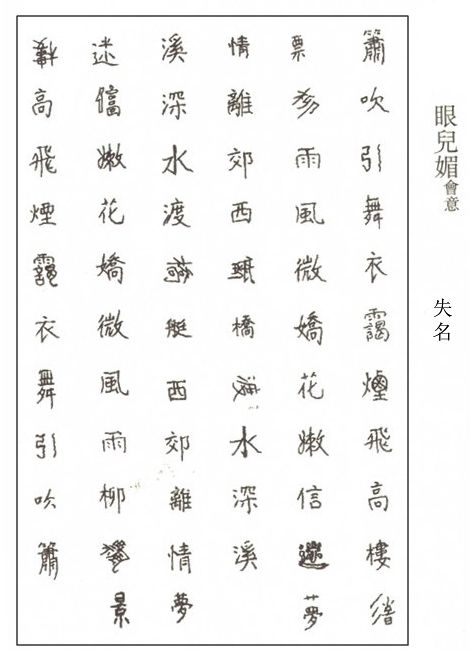 眼兒媚會意
失名
簫吹引舞衣靄煙飛高樓
票雨風微嬌花嫩信迷夢
情離郊西橋水深溪
溪深水渡艇西郊離情夢
迷嫩花嬌微風雨柳景
高飛煙靄衣舞引吹簫